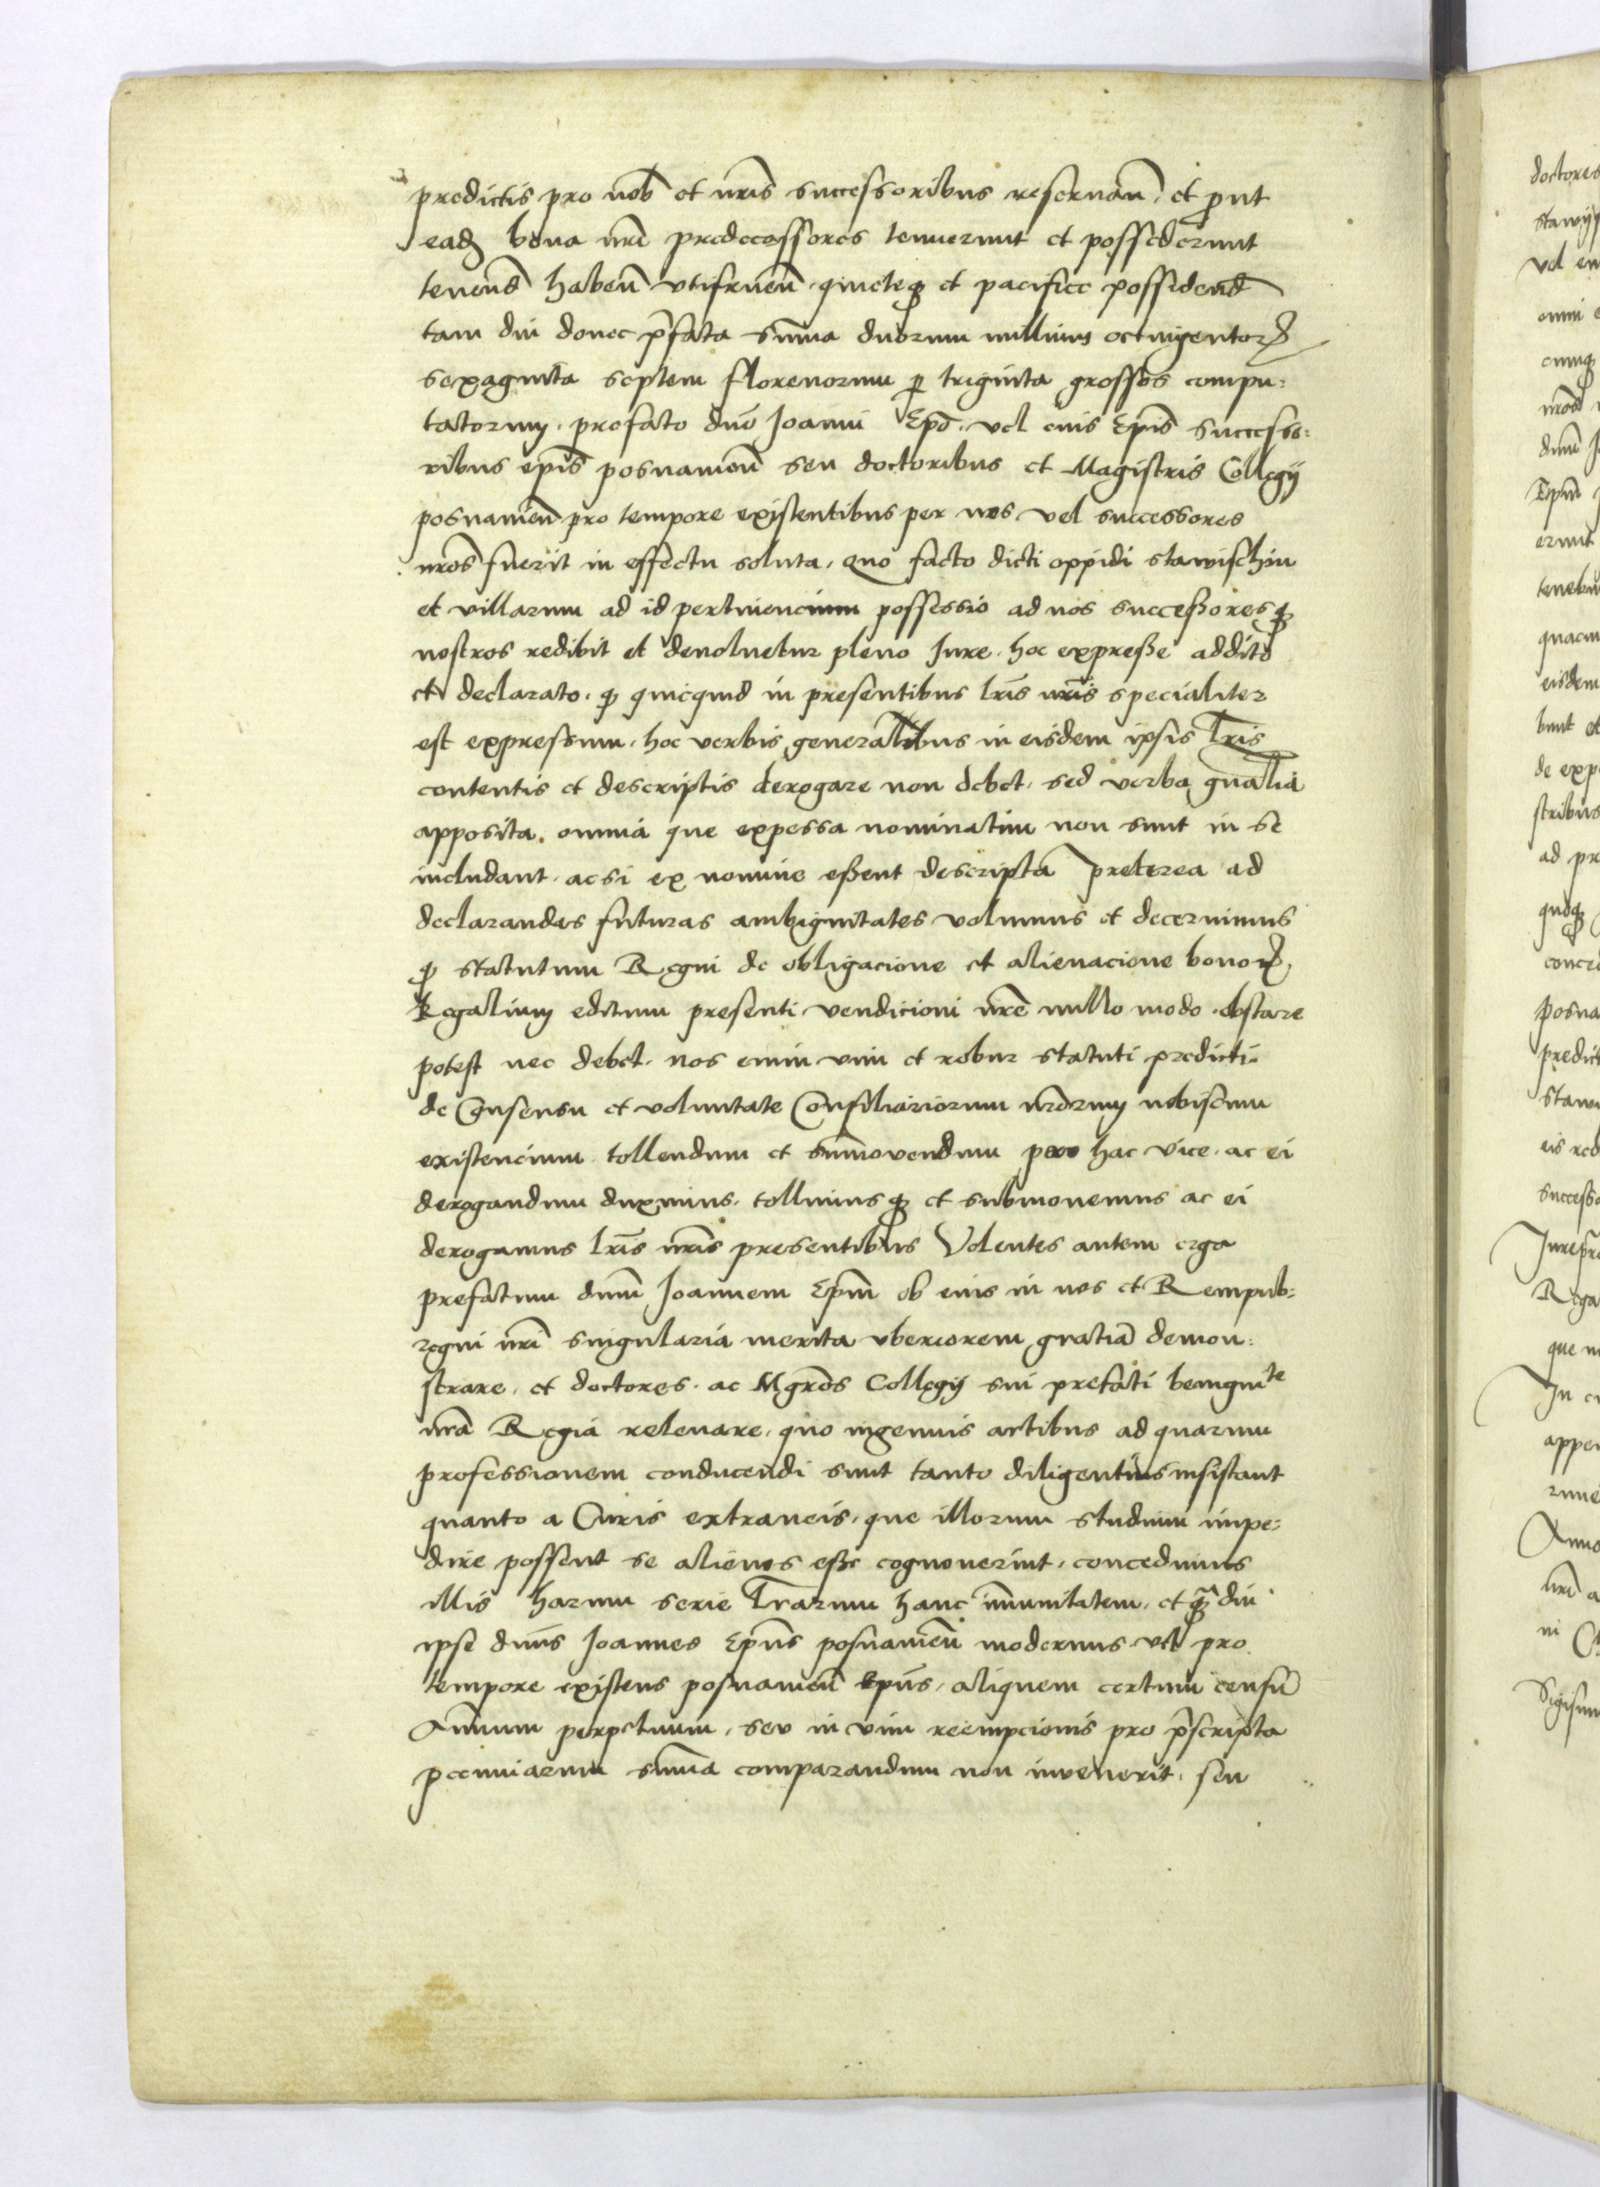 predictis pro nob et nris successoribus reseruan, et prout
eadem bona nri predecessores tenuerunt et possederunt
tenend haben utifruen quieteque et pacifice possidend
tam diu donec prefata summa duorum millium octingentorum
sexaginta septem florenorum per triginta grossos compu:
tatorum, prefato dno Joanni Epo, vel eius Epis successo:
ribus epis posnanien seu doctoribus et Magistris Collegij
posnanien pro tempore existentibus per nos vel successores
nros fuerit in effectu soluta, quo facto dicti oppidi stawischin
et villarum ad id pertinencium possessio ad nos successoresque
nostros redibit et deuoluetur pleno Jure, hoc expresse addito
et declarato, quod quicquid in presentibus lris nris specialiter
est expressum, hoc verbis generalibus in eisdem ipsis lris
contentis et descriptis derogare non debet, sed verba gnalia
apposita, omnia que expessa nominatim non sunt in se
includant, acsi ex nomine essent descripta Preterea ad
declarandas futuras ambiguitates volumus et decernimus
quod statutum Regni de obligacione et alienacione bonorum
Regalium editum presenti vendicioni nre nullo modo obstare
potest nec debet, nos enim vim et robur statuti predicti
de Consensu et voluntate Consiliariorum nrorum nobiscum
existencium tollendum et summovendum pro hac vice, ac ei
derogandum duximus, tollimusque et submouemus ac ei
derogamus lris nris presentibus Volentes autem erga
prefatum dnum Joannem Epum ob eius in nos et Rempub:
regni nri singularia merita vberiorem gratiam demon:
strare, et doctores, ac Mgros Collegij sui prefati benignite
nra Regia releuare, quo ingenuis artibus ad quarum
professionem conducendi sunt tanto diligentius insistant
quanto a Curis extraneis, que illorum studium impe:
dire possent se alienos esse cognouerint, concedimus
illis harum serie lrarum hanc immunitatem, et quam diu
ipse dnus Joannes Epus posnanien modernus vel pro
tempore existens posnanien Epus, aliquem certum censum
Annuum perpetuum, seu in vim reempcionis pro prescripta
pecuniarum summa comparandum non invenerit, seu